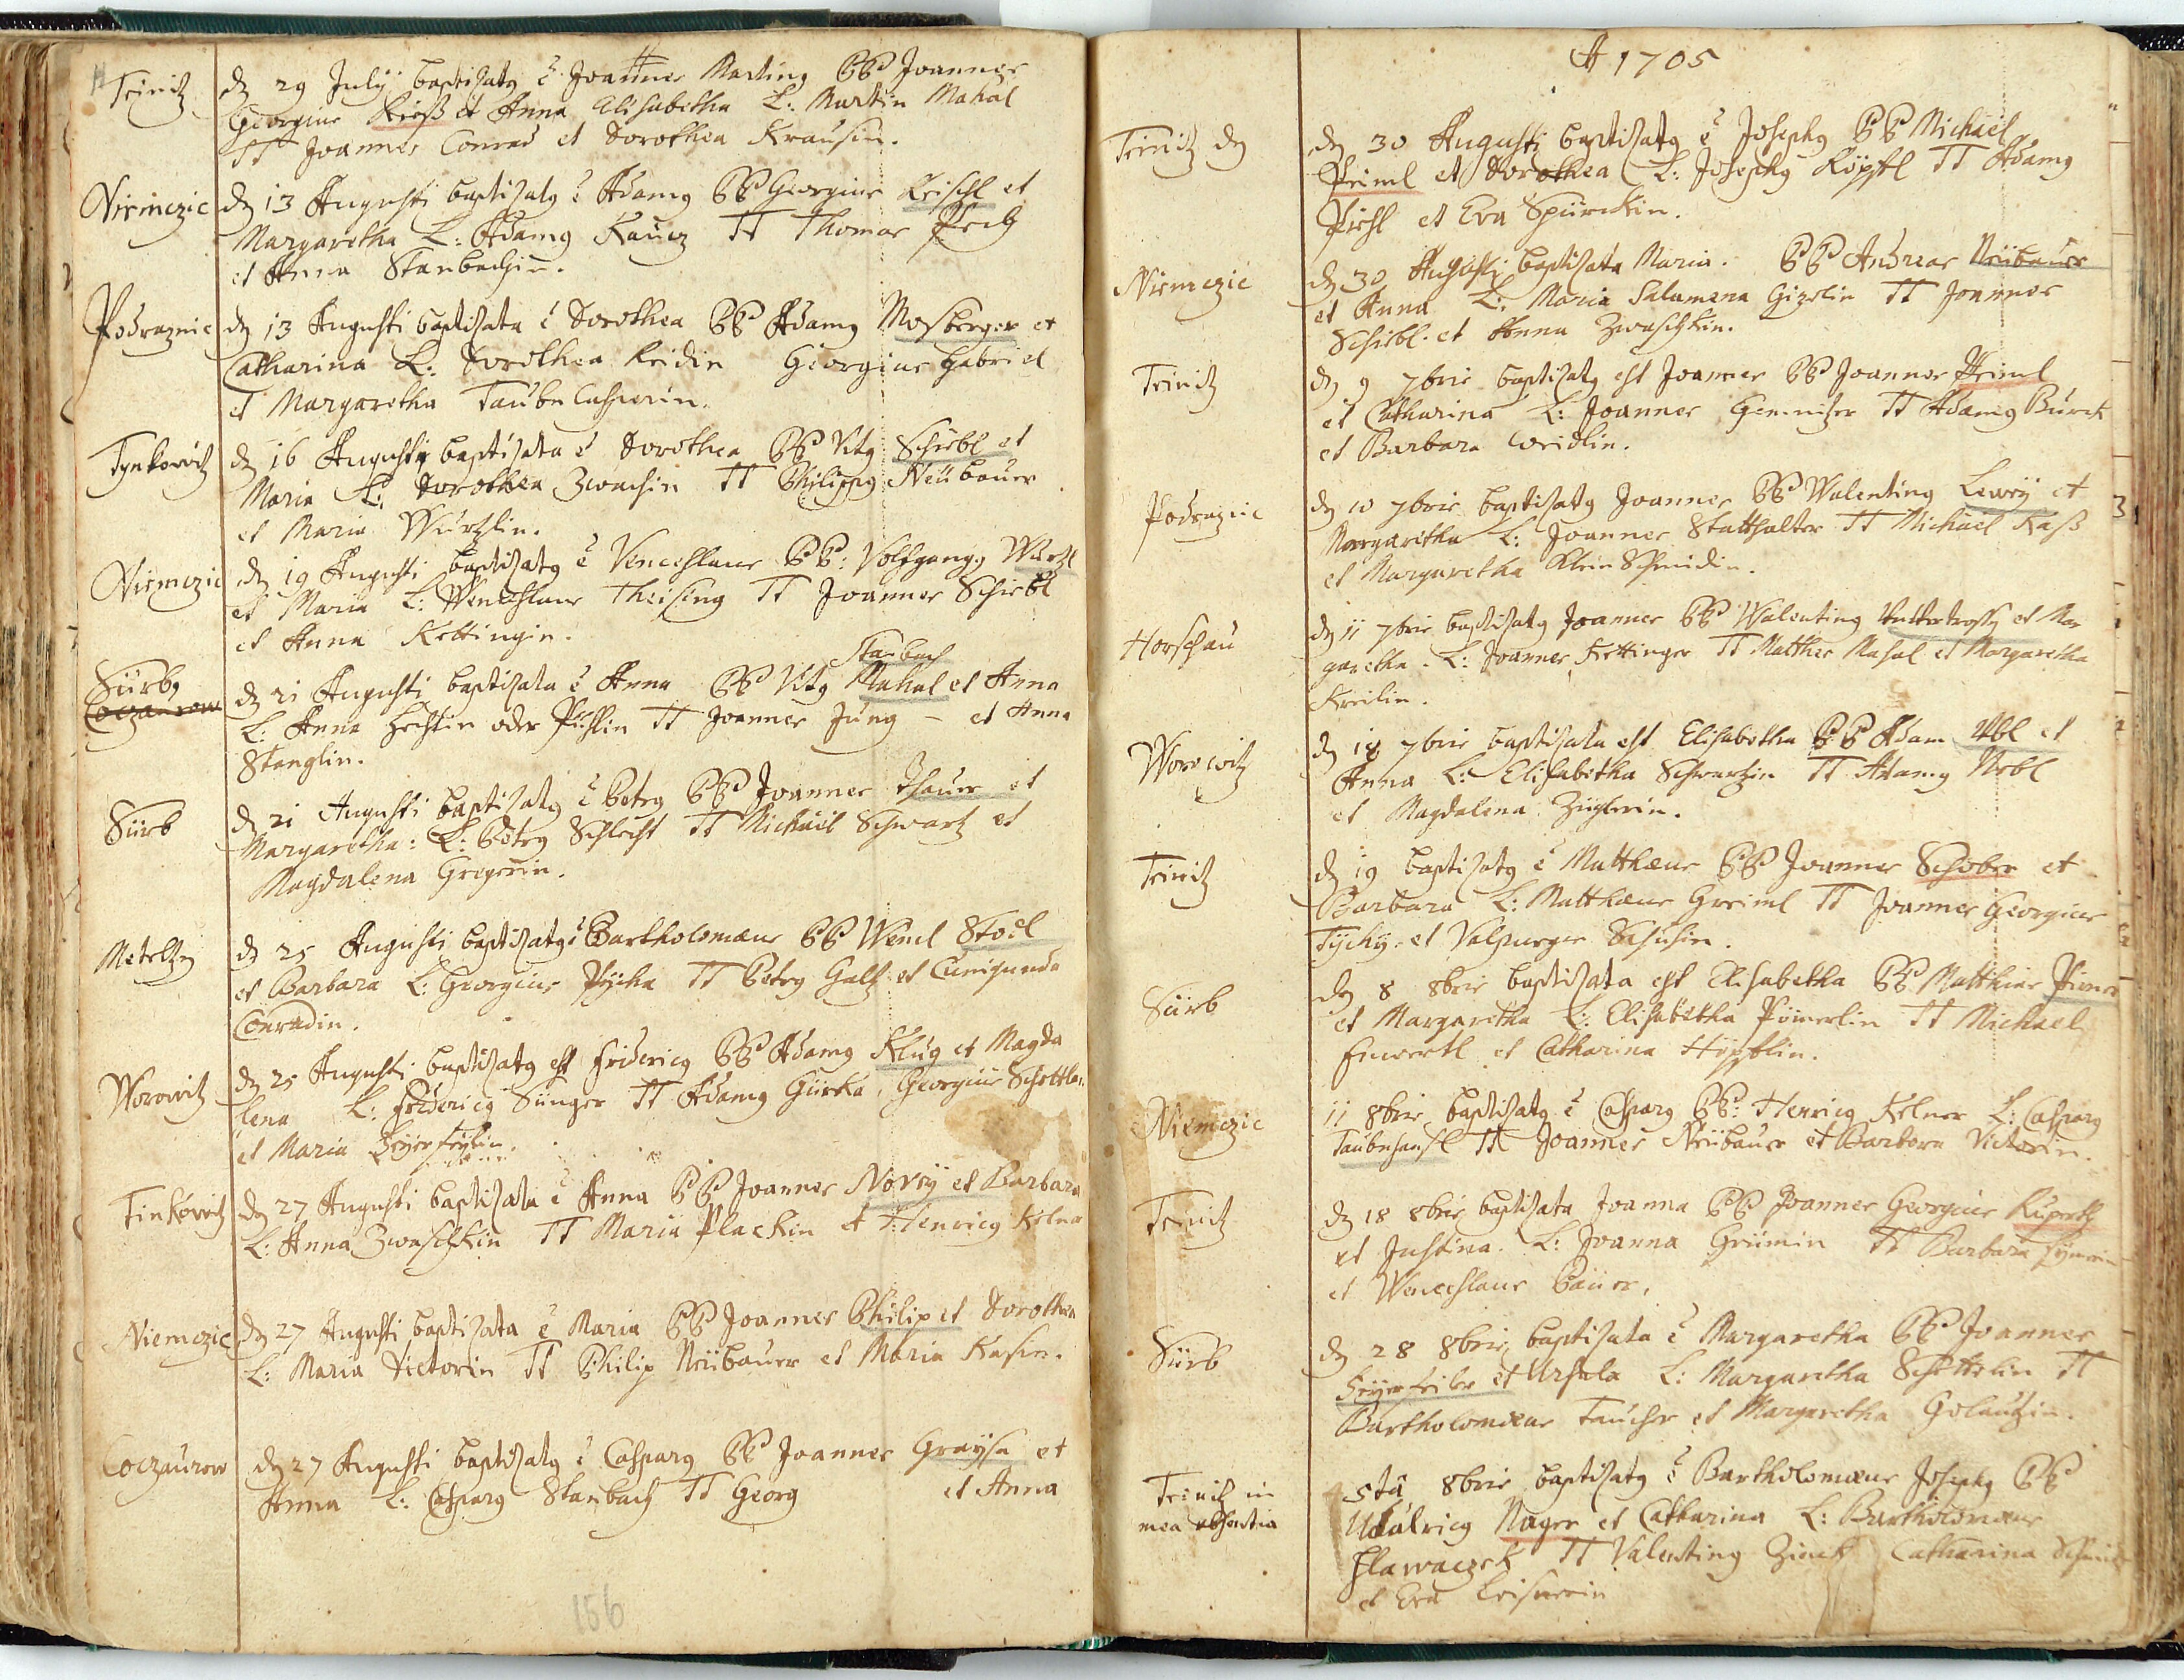 Teinitz
dn 29 July baptizatg ē Joannes Marting PP Joannes
Georgius et Anna Elisabetha L: Martin Mahal
TT Joannes Conrad et Dorothea Krausin.
Niemczic
dn 13 Augusti baptizatg ē Adamg PP Georgius Reischl et
Margaretha L: Adamg Raucz TT Thomas
et Anna Stanbachin.
Podraznic
dn 13 Augusti baptizata ē Dorothea PP Adamg Mosberger et
Catharina L: Dorothea Reidin Georgius Gabriel
et Margaretha Taube Casperin.
Tynkowitz
dn 16 Augusti baptizata ē Dorothea PP Vitg Schiebl et
Maria L: Dorothea Zwachin TT Philippg Neübauer
et Maria Würtzlin.
Niemczic
dn 19 Augusti baptizatg ē Venceslaus PP: Volfgangg Würtzl
et Maria L: Wenceslaus Theising TT Joannes Schiebl
et Anna Kettingin.
Stanbach
Sürb
Coczaurow
dn 21 Augusti baptizata ē Anna PP Vitg Mahal et Anna
L: Anna Hechtin oder TT Joannes Jung – et Anna
Stanglin.
Sürb
dn 21 Augusti baptizatg ē Petrg PP Joannes Thauer et
Margaretha: L: Petrg Schlecht TT Michäel Schwartz et
Magdalena Gregerin.
Meteltzn
dn 25 Augusti baptizatg ē Bartholomæus PP Wencl Stoel
et Barbara L: Georgius Pycha TT Petrg Galtz et Cunigunda
Conradin.
Worowitz
dn 25 Augusti baptizatg est Fridericg PP Adamg Klug et Magda
lena L: Fridericg Sünger TT Adamg Gürka, Georgius
et Maria
Tinkowitz
dn 27 Augusti baptizata ē Anna PP Joannes Novÿ et Barbara
L: Anna Zwaschkin TT Maria Plackin et Henricg Kelner
Niemczic
dn 27 Augusti baptizata ē Maria PP Joannes Philip et Dorothea
L: Maria Victorin TT Philip Neübauer et Maria Kasin.
Coczaurow
dn 27 Augusti baptizatg ē Casparg PP Joannes Graÿsa et
Anna L: Casparg Stanbach TT Georg et Anna
156
A 1705
Teinitz dn
dn 30 Augusti baptizatg ē Josephg PP Michäel
Preiml et Dorothea L: Josephg TT Adamg
et Eva Spürckin.
Niemczic
dn 30 Augusti baptizata Maria. PP Andreas Neübauer
et Anna L: Maria Salamena Gizelin TT Joannes
Schiebl. et Anna Zwaschkin.
Teinitz
dn 9 7bris baptizatg est Joannes PP Joannes Preiml
et Catharina L: Joannes TT Adamg Bürck
et Barbara Weidlin.
Podraznic
dn 10 7bris baptizatg Joannes PP Walenting Lewÿ et
Margaretha L: Joannes Statthalter TT Michäel Kaß
et Margaretha Klein Schmidin.
Horschau
dn 11 7bris baptizatg Joannes PP Walenting et Mar
garetha. L: Joannes Kettinger TT Matthes Mahal et Margaretha
Kreilin.
Worowitz
dn 18 7bris baptizata est Elisabetha PP Adam et
Anna L: Elisabetha Schwartzin TT Adamg
et Magdalena Züglerin.
Teinitz
dn 19 baptizatg ē Matthæus PP Joannes Schober et
Barbara L: Matthæus Greiml TT Joannes Georgius
Tychÿ. et Valpurga
Sürb
dn 8 8bris baptizata est Elisabetha PP Matthias
et Margaretha L: Elisabetha TT Michael
et Catharina Hopflin.
Niemczic
11 8bris baptizatg ē Casparg PP: Henricg Kelner L: Casparg
Taubehansl TT Joannes Neübauer et Barbora Victorin.
Teinitz
dn 18 8bris baptizata Joanna PP Joannes Georgius Ruperth
et Justina. L: Joanna Grümin TT Barbara
et Wenceslaus Bauer.
Sürb
dn 28 8bris baptizata ē Margaretha PP Joannes
et Ursula L: Margaretha TT
Bartholomæus Taucher et Margaretha Golautzin.
Teinitz in
mea absentia
5ta 8bris baptizatg ē Bartholomæus Josephg PP
Udalricg Nager et Catharina L: Bartholomæus
Hlawaczek TT Valenting Zinck Catharina
et Eva